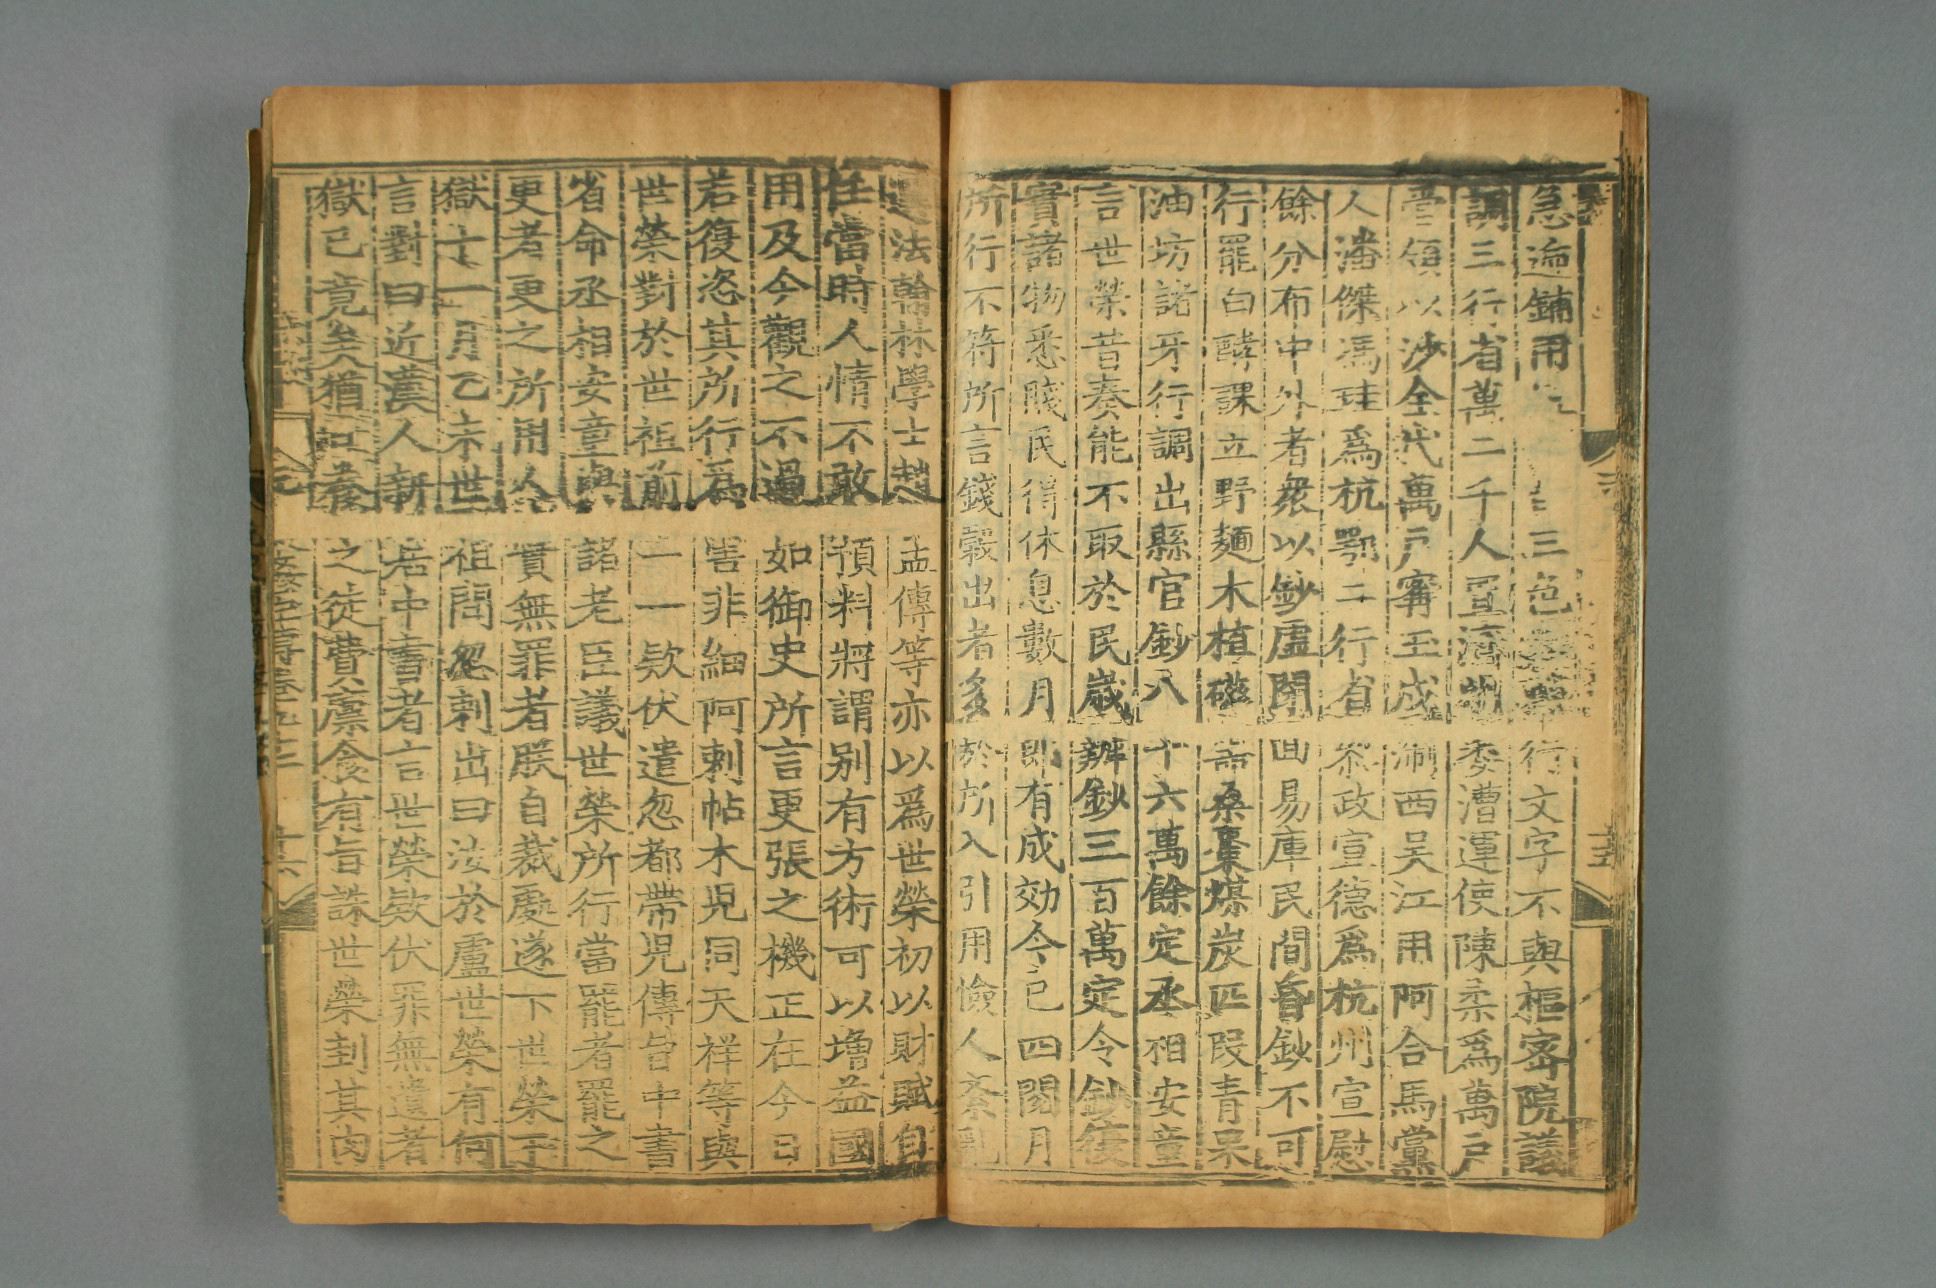 急遞鋪用 三色 行文字不與樞密院議
調三行省萬二千人置濟州 委漕運使陳柔爲萬戶
管領以沙全代萬戶寗玉戍浙西吳江用阿合馬黨
人潘傑馮珪爲杭鄂二行省叅政宣德爲杭州宣慰
餘分布中外者衆以鈔虛閉囘易庫民間昏鈔不可
行罷白酵課立野麵木植磁器桑棗煤炭匹段青果
油坊諸牙行調出縣官鈔八十六萬餘定丞相安童
言世榮昔奏能不取於民歲辨鈔三百萬定令鈔復
實諸物悉賤民得休息數月即有成効今已四閱月
所行不符所言錢榖出者多於所入引用憸人紊亂
選法翰林學士趙孟傳等亦以爲世榮初以財賦自
任當時人情不敢預料將謂别有方術可以增益國
用及今觀之不過如御史所言更張之機正在今日
若復恣其所行爲害非細阿剌帖木兒同天祥等與
世榮對於世祖前一一欵伏遣忽都帶兒傳旨中書
省命丞相安童與諸老臣議世榮所行當罷者罷之
更者更之所用人實無罪者朕自裁處遂下世榮于
獄十一月乙未世祖問忽剌出曰汝於盧世榮有何
言對曰近漢人新居中書者言世榮欵伏罪無遺者
獄已竟矣猶扛養之徒費廩食有旨誅世榮刲其肉